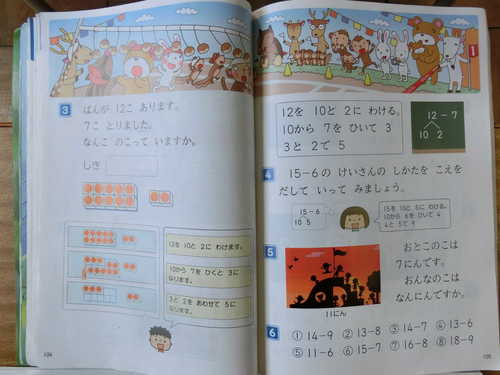 3 ぱんが 12こ あります。
7こ とりました。
なんこ のこって いますか。
しき
12を 10と 2に わけます。
10から 7を ひくと 3に
なります。
3と 2を あわせて 5に
なります。
104
12を 10と 2に わける。
10から 7を ひいて 3
3と 2で 5
12-7
10 2
4 15-6の けいさんの しかたを こえを
だして いって みましょう。
15-6
10 5
15を 10と 5に わける。
10から 6を ひいて 4
4と 5で 9
5 おとこのこは
7にんです。
おんなのこは
なんにんですか。
11にん
6 ① 14-9 ② 13-8 ③ 14-7 ④ 13-6
⑤ 11-6 ⑥ 15-7 ⑦ 16-8 ⑧ 18-9
105